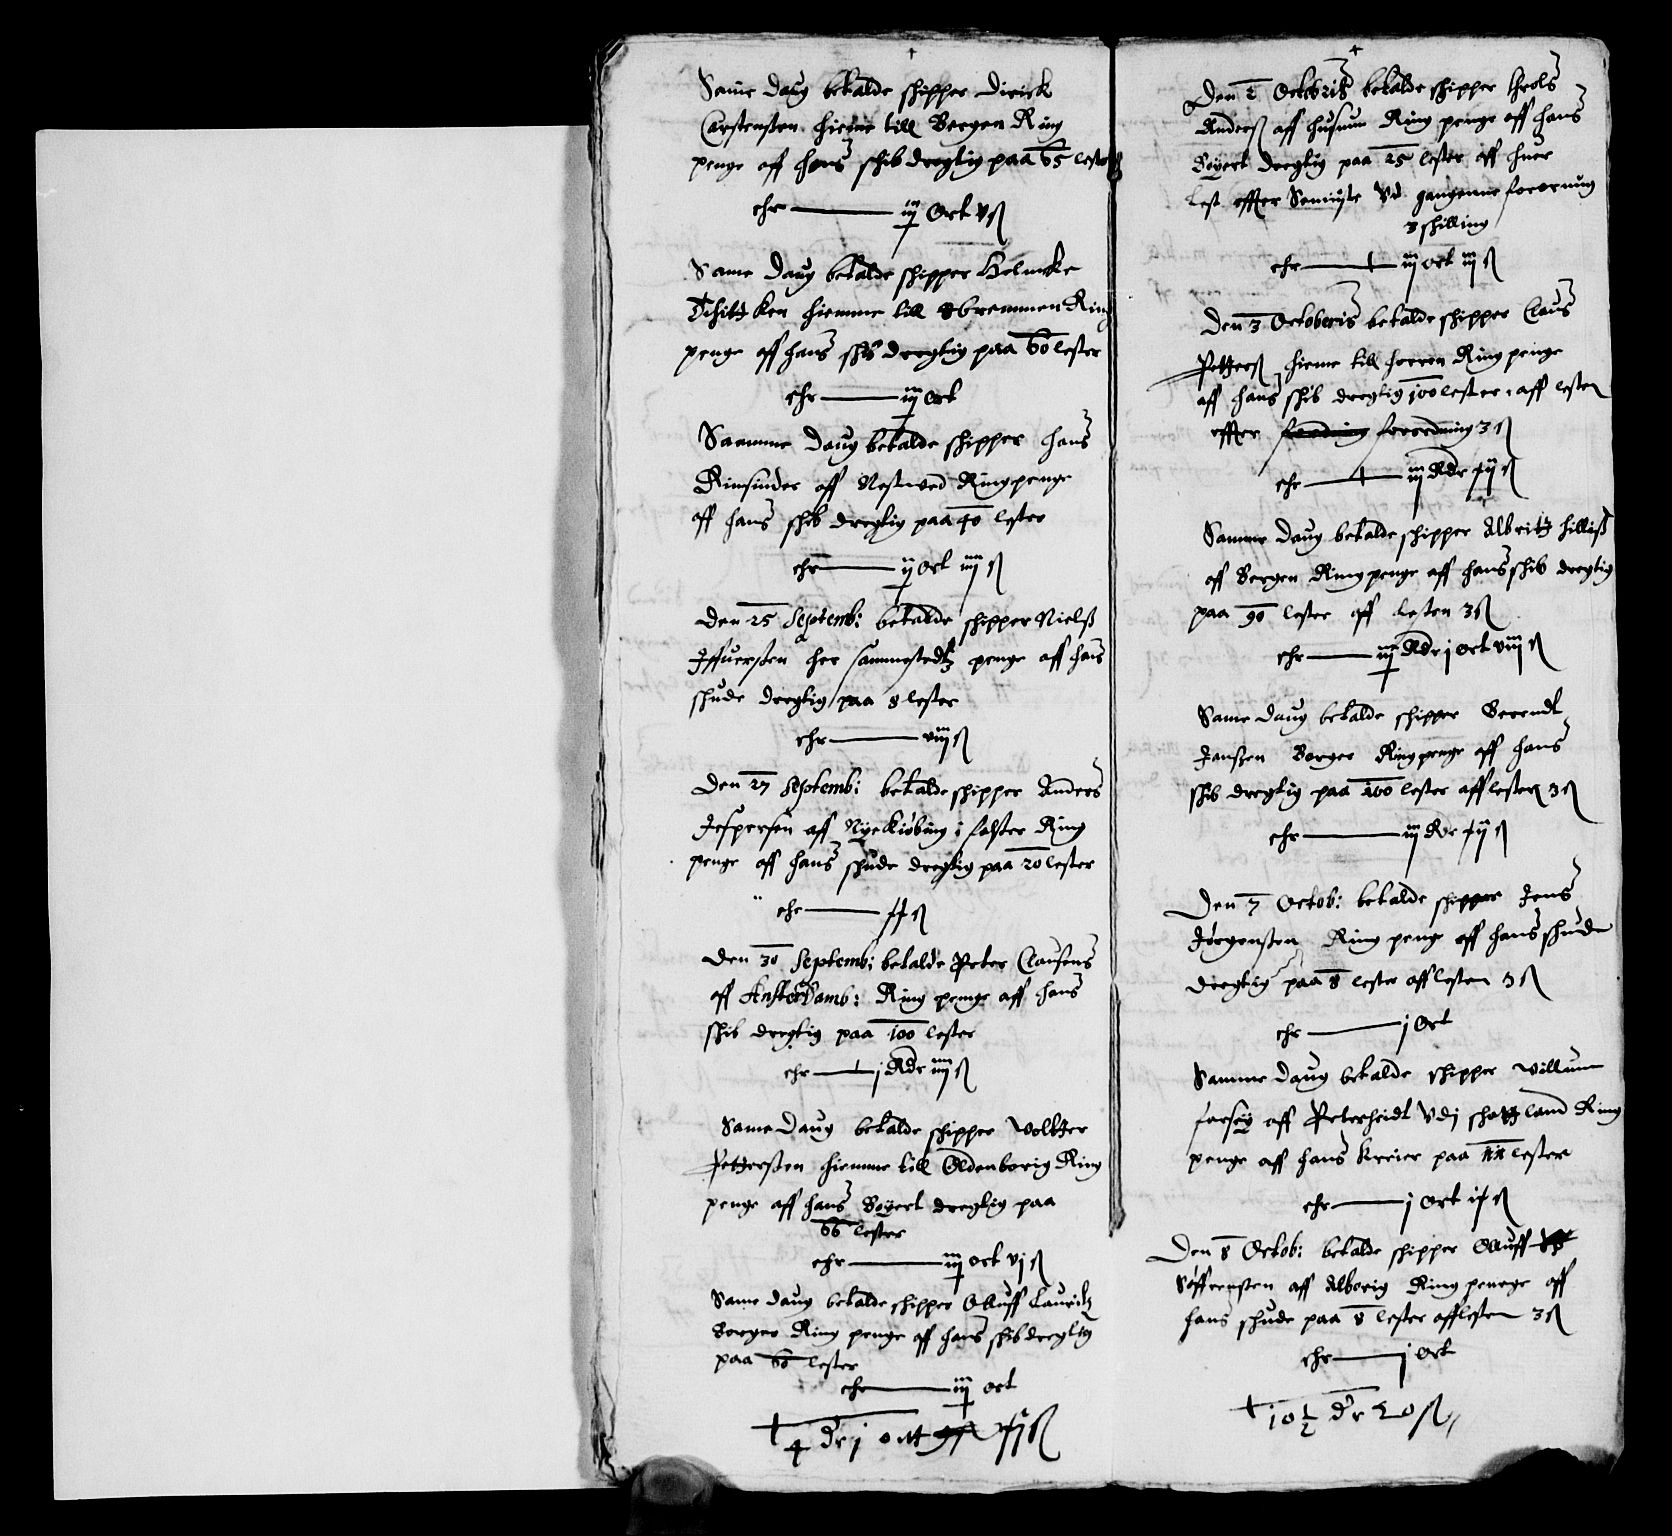 Same daug betalde shipper Dirick
Carstensten hieme till Bergen Ring
penge aff hans shib dregtig paa 65 lester
ehr — iij Ort v ß
Same daug betalde shipper Helmeke
hiemme till Bremmen Ring
penge aff hans shib dregtig paa 60 lester
ehr — iij Ort
Saamme daug betalde shipper hans
aff Nestued Ring penge
aff hans shib dregtig paa 40 lester
ehr — ij Ort iiij ß
Den 25 Septemb: betalde shipper Nielß
Iffuersten her sammestedtz penge aff hans
shude dregtig paa 8 lester
ehr — viij ß
Den 27 Septemb: betalde shipper Anders
Jespersen aff Nyekiøbing i falster Ring
penge aff hans shude dregtig paa 20 lester
ehr — ß
Den 30 Septemb: betalde Peter Clausens
aff Amsterdamb: Ring penge aff hans
shib dregtig paa 100 lester
ehr — j Rdr iiij ß
Same Daug betalde shipper Volkzer
Petterßen hiemme till Oldenborig Ring
penge aff hans Boyert dregtig paa
66 lester
ehr — iij ort vj ß
Same daug betalde shipper Olluff Lauridtz
Borger Ring penge aff hans shib dregtig
paa 60 lester
ehr — iij ort
4 dr j ortt ß
Den 2 Octobris betalde shipper
Anderß aff husum Ring penge aff hans
Boyert dregtig paa 25 lester aff huer
Lest effter Seniiste Vd gangenne forornung
3 shilling
ehr — iij ort iij ß
Den 3 Octoberis betalde shipper Claus
Petterß hieme till horren Ring penge
aff hans shib dregtig 100 lester aff lesten
effter forordning 3 ß
ehr — iij Rdr ß
Samme daug betalde shipper Albritz hilliß
aff Bergen Ring penge aff hans shib dregtig
paa 90 lester aff lesten 3 ß
ehr — iij Rdr j ort viij ß
Same daug betalde shipper Berendt
Janßen Borger Ring penge aff hans
shib dregtig paa 100 lester aff lesten 3 ß
ehr — iij dr ß
Den 7 Octob: betalde shipper Jens
Jørgensten Ring penge aff hans shude
dregtig paa 8 lester aff lesten 3 ß
ehr — j Ort
Samme daug betalde shipper Willum
forsey aff Peterheidt Vdj shottland Ring
penge aff hans kreier paa lester
ehr — j Ort ß
Den 8 Octob: betalde shipper Olluff
Søffrensten aff Alborig Ring penge aff
hans shude paa 8 lester aff lesten 3 ß
ehr — j Ort
10 ½ dr 20 ß